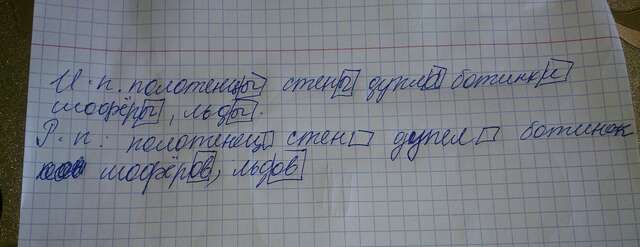 И.п. полотенцы стены дупла ботинки
шофёры, льды.
Р.п. полотенец стен дупел ботинок
шофёров, льдов